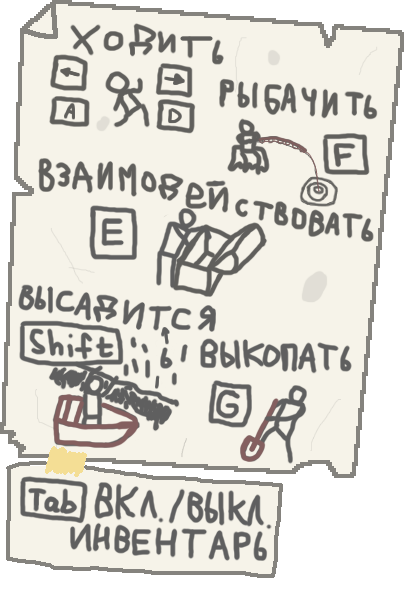 ХОДИТЬ
← →
A D
РЫБАЧИТЬ
F
ВЗАИМОДЕЙСТВОВАТЬ
E
ВЫСАДИТСЯ
Ь
Shift
ВЫКОПАТЬ
G
Tab ВКЛ./ВЫКЛ.
ИНВЕНТАРЬ